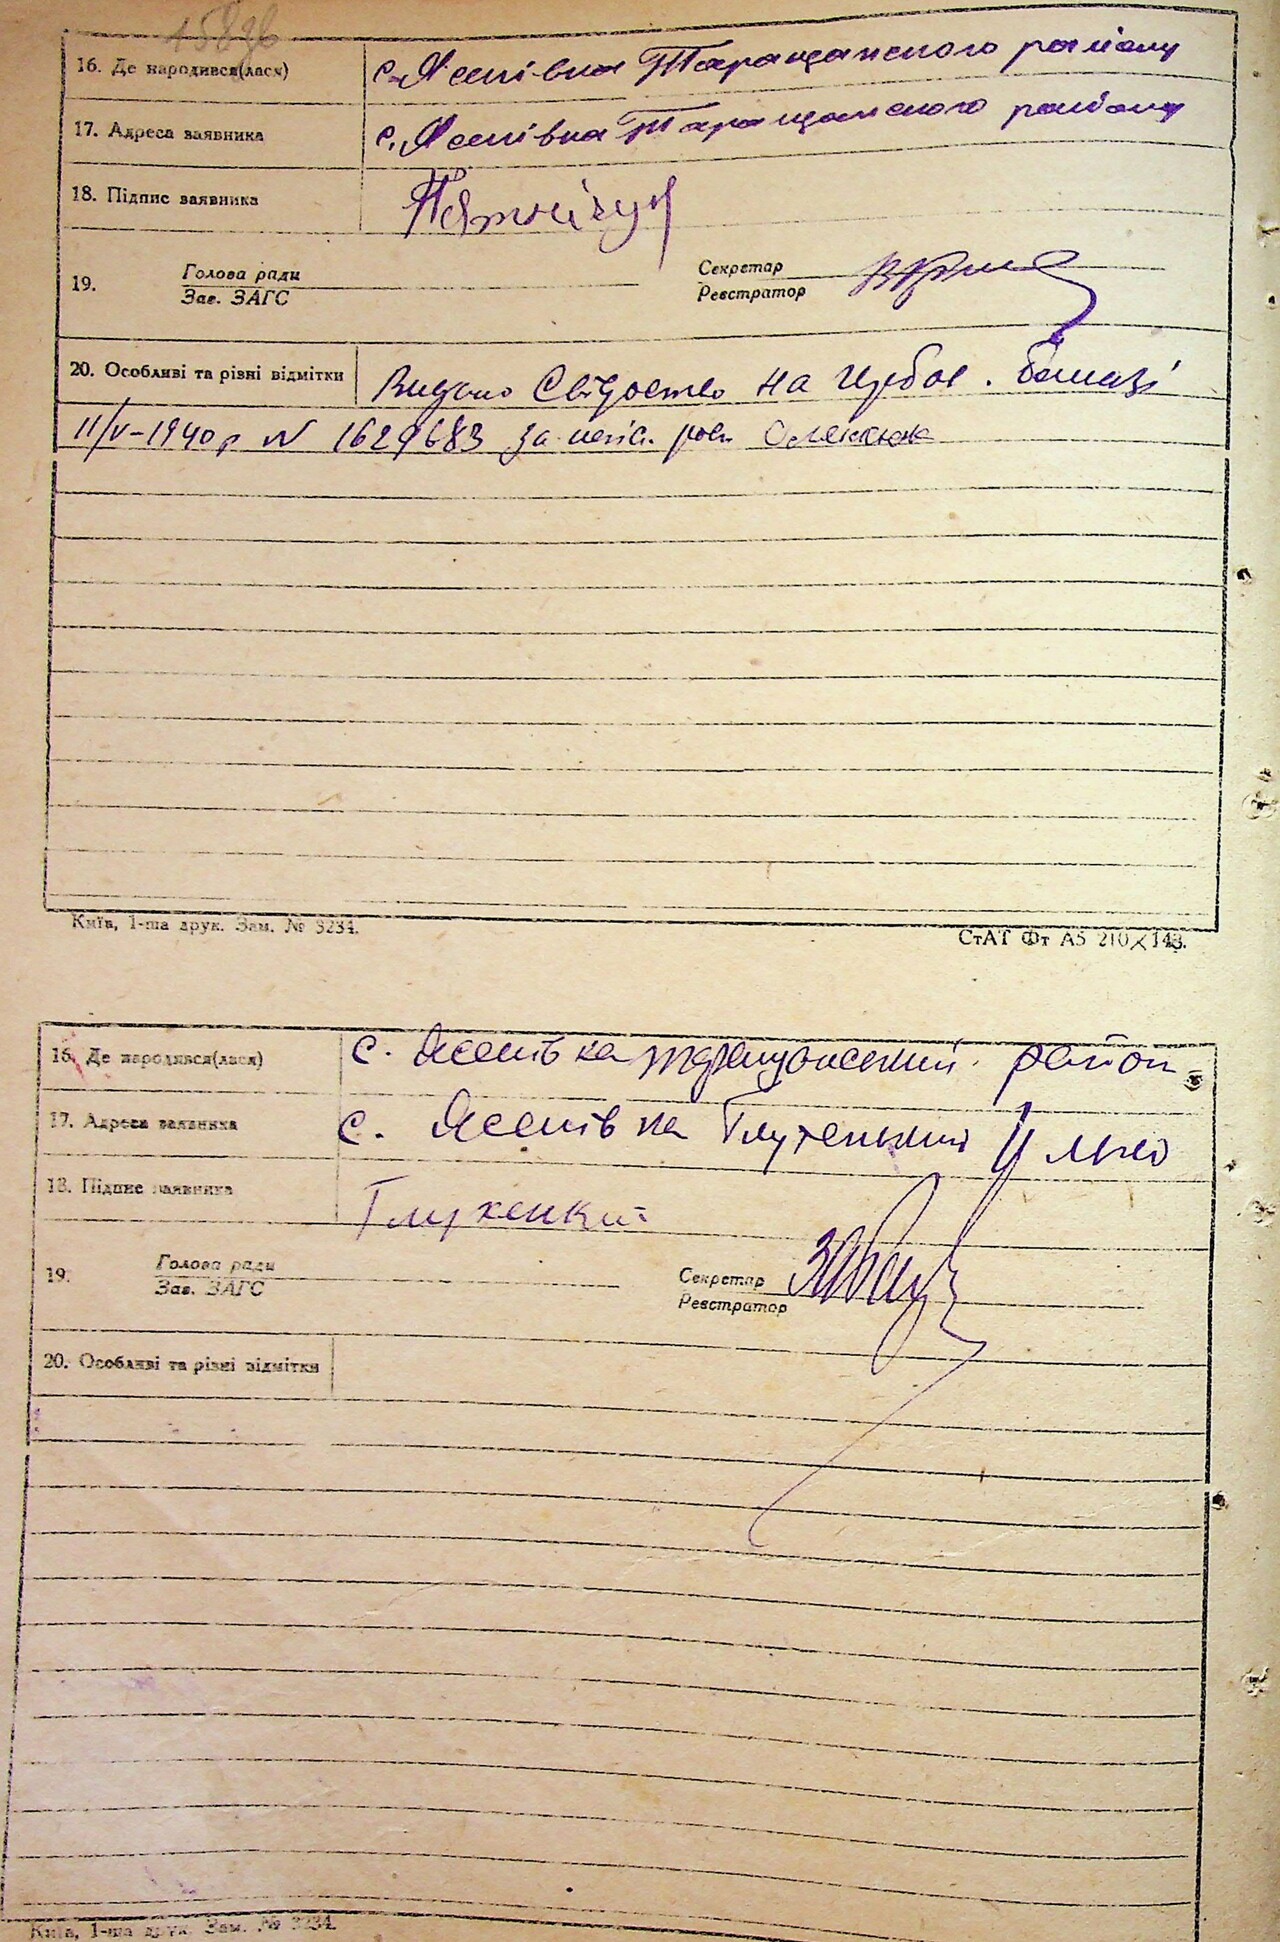 15896
16. Де народився(лася) с. Ясенівка Таращанского району
17. Адреса заявника с. Ясенівка Таращанского району
18. Підпис заявника
19. Голова ради
Зав. ЗАГС
Секретар
Реєстратор
20. Особливі та різні відмітки Видано Свідоство на гербов. бомазі
11/V-1940 р N 1629683 за
Київ, 1-ша друк. Зам. № 3234.
СтАТ Фт А5 210×143.
16. Де народився(лася) с. Ясенівка Таращанський район
17. Адреса заявника с. Ясенівка Глухенький
18. Підпис заявника Глухенкий
19. Голова ради
Зав. ЗАГС
Секретар
Реєстратор
20. Особливі та різні відмітки
Київ, 1-ша друк. Зам. № 3234.